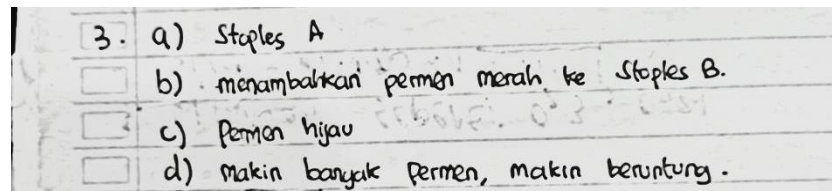 3. a) Stoples A
b) menambahkan permen merah ke Stoples B.
c) Permen hijau
d) Makin banyak Permen, makin beruntung.